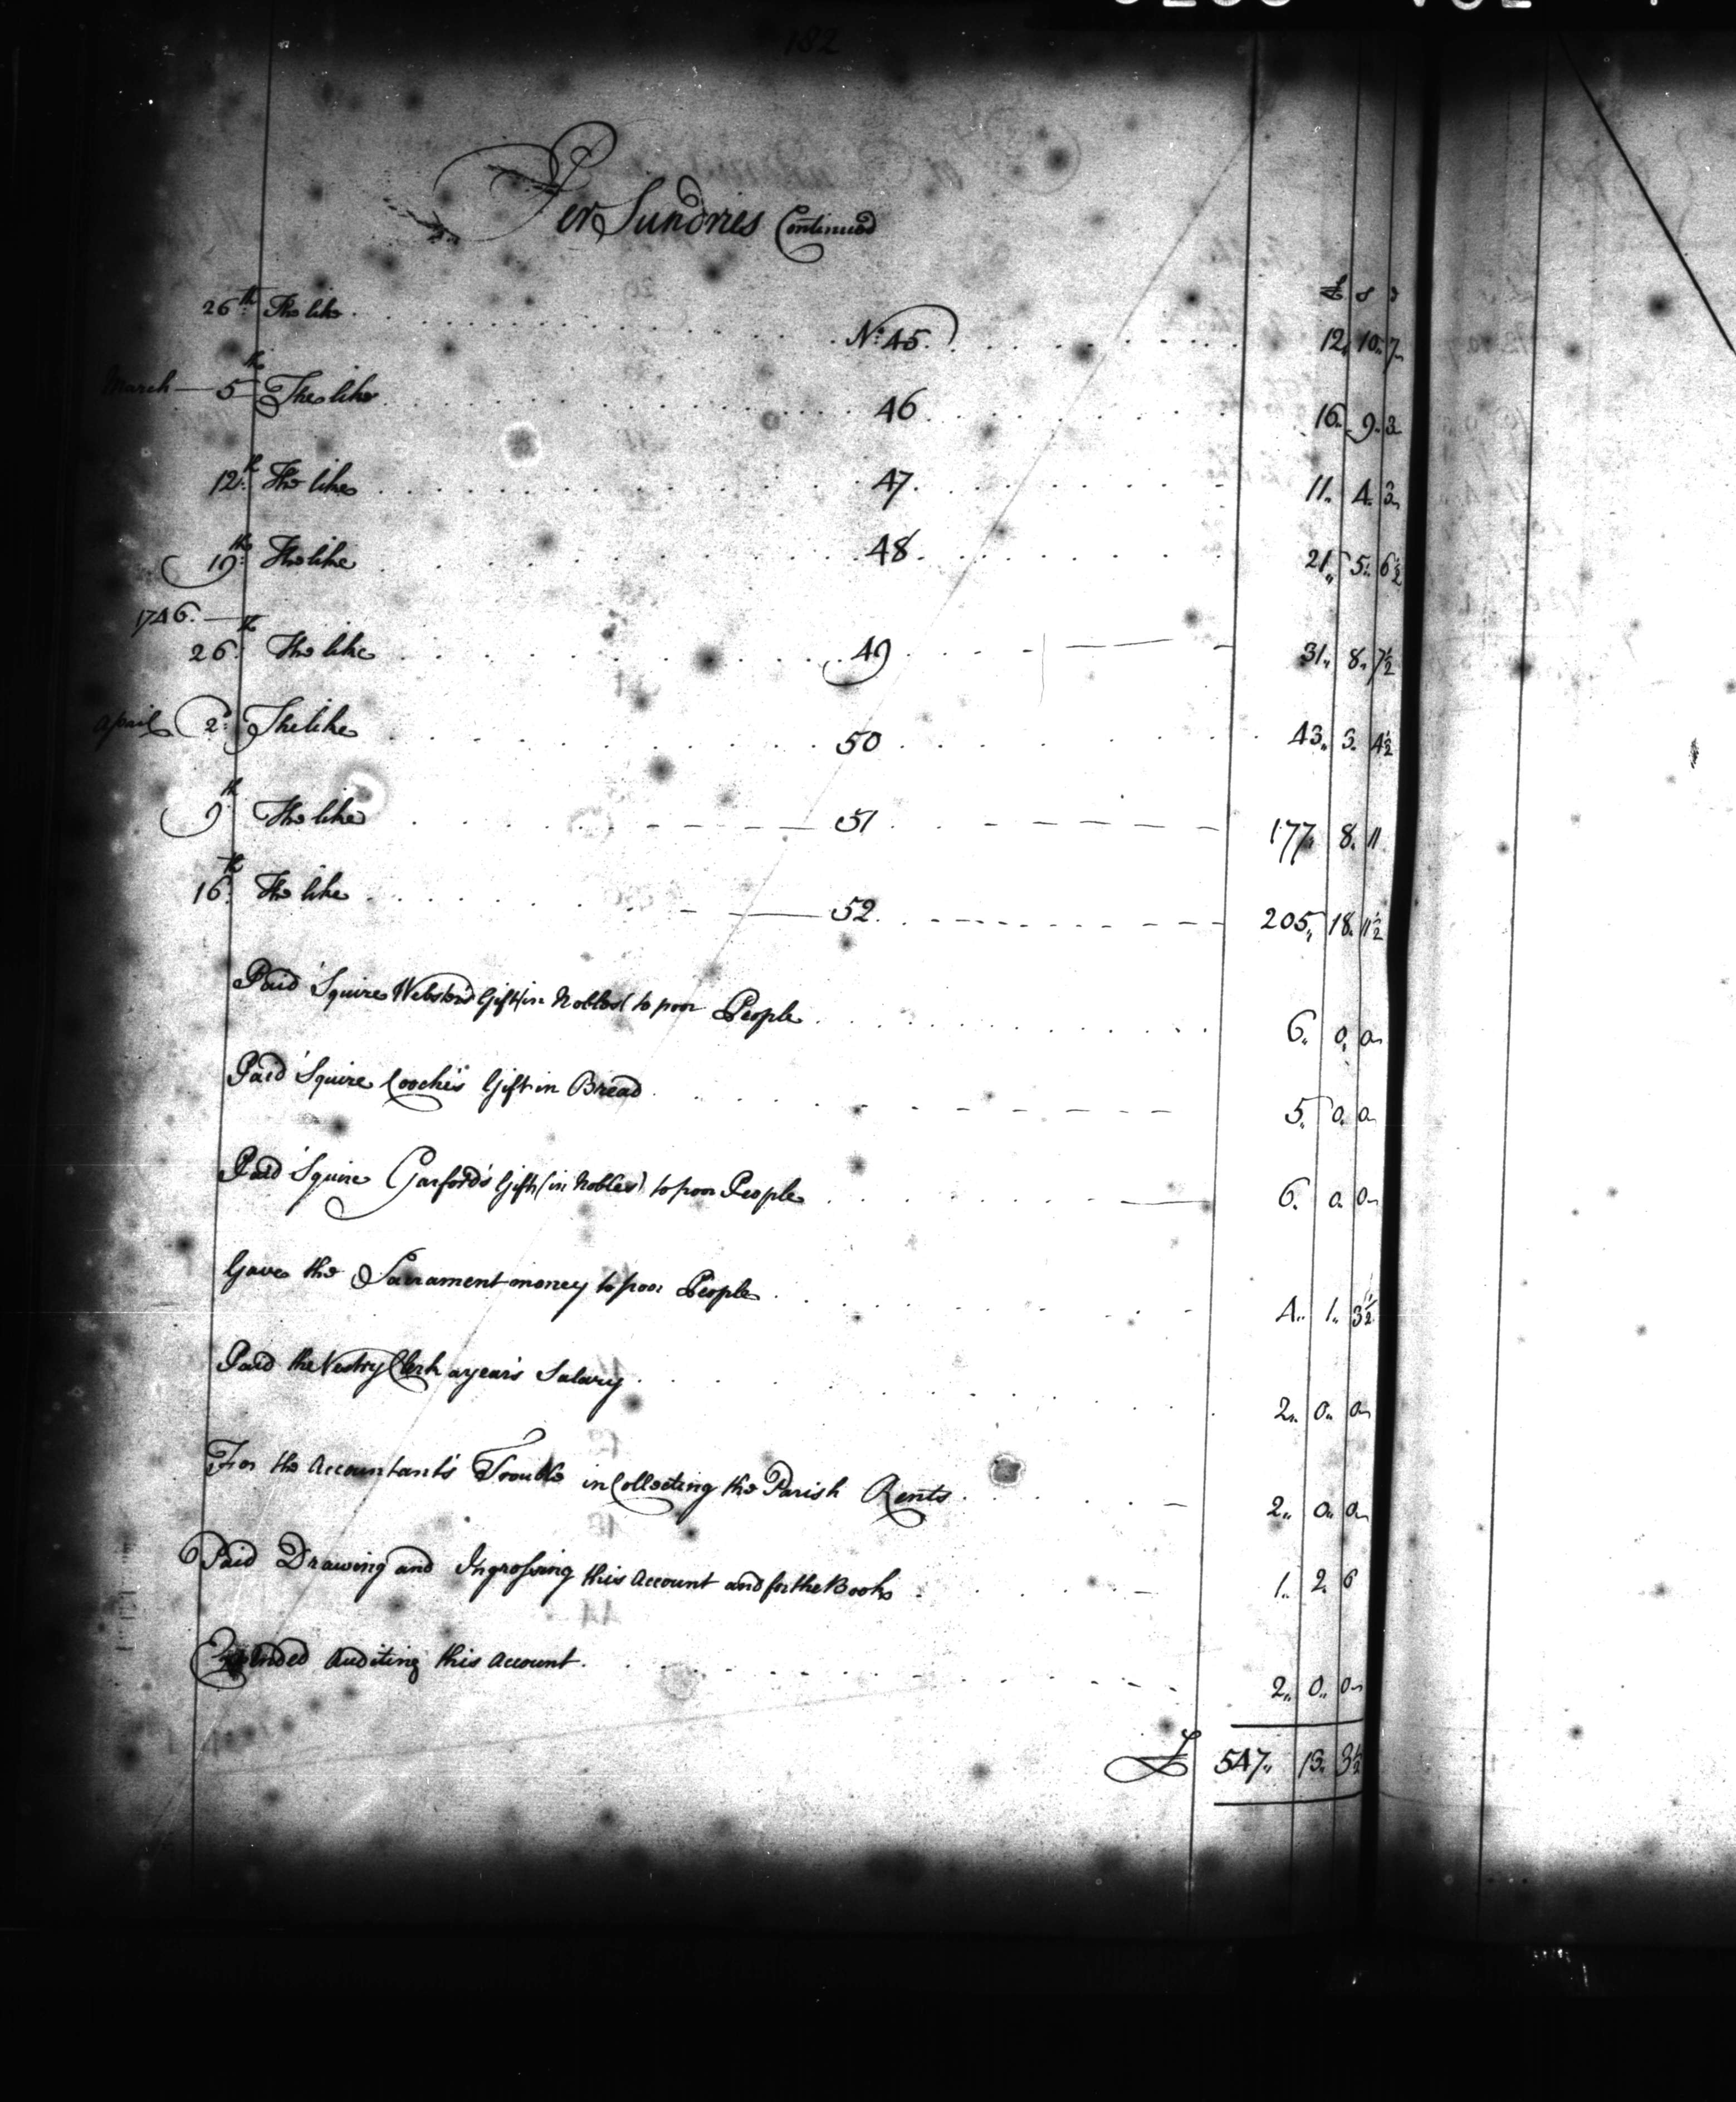 182
Per Sundries Continued
£ s d
26th The like . . . No. 45 . . . 12,, 10,, 7
March — 5th The like . . . 46 . . . 16,, 9,, 3
12th The like . . . 47 . . . 11,, 4,, 3
19th The like . . . 48 . . . 21,, 5,, 6½
1746. —
26th The like . . . 49 . . . 31,, 8,, 7½
April 2d The like . . . 50 . . . 43,, 3,, 4½
9th The like . . . 51 . . . 177,, 8,, 11
16th The like . . . 52 . . . 205,, 18,, 11½
Paid 'Squire Webster's Gift (in Nobles) to poor People . . . 6,, 0,, 0
Paid 'Squire Cooche's Gift in Bread . . . 5,, 0,, 0
Paid 'Squire Garford's Gift (in Nobles) to poor People . . . 6,, 0,, 0
Gave the Sacrament money to poor People . . . 4,, 1,, 3½
Paid the Vestry Clerk a year's Salary . . . 2,, 0,, 0
For the Accountant's Trouble in Collecting the Parish Rents . . . 2,, 0,, 0
Paid Drawing and Ingrossing this Account and for the Books . . . 1,, 2,, 6
Expended Auditing this Account . . . 2,, 0,, 0
£ 547,, 13,, 3½